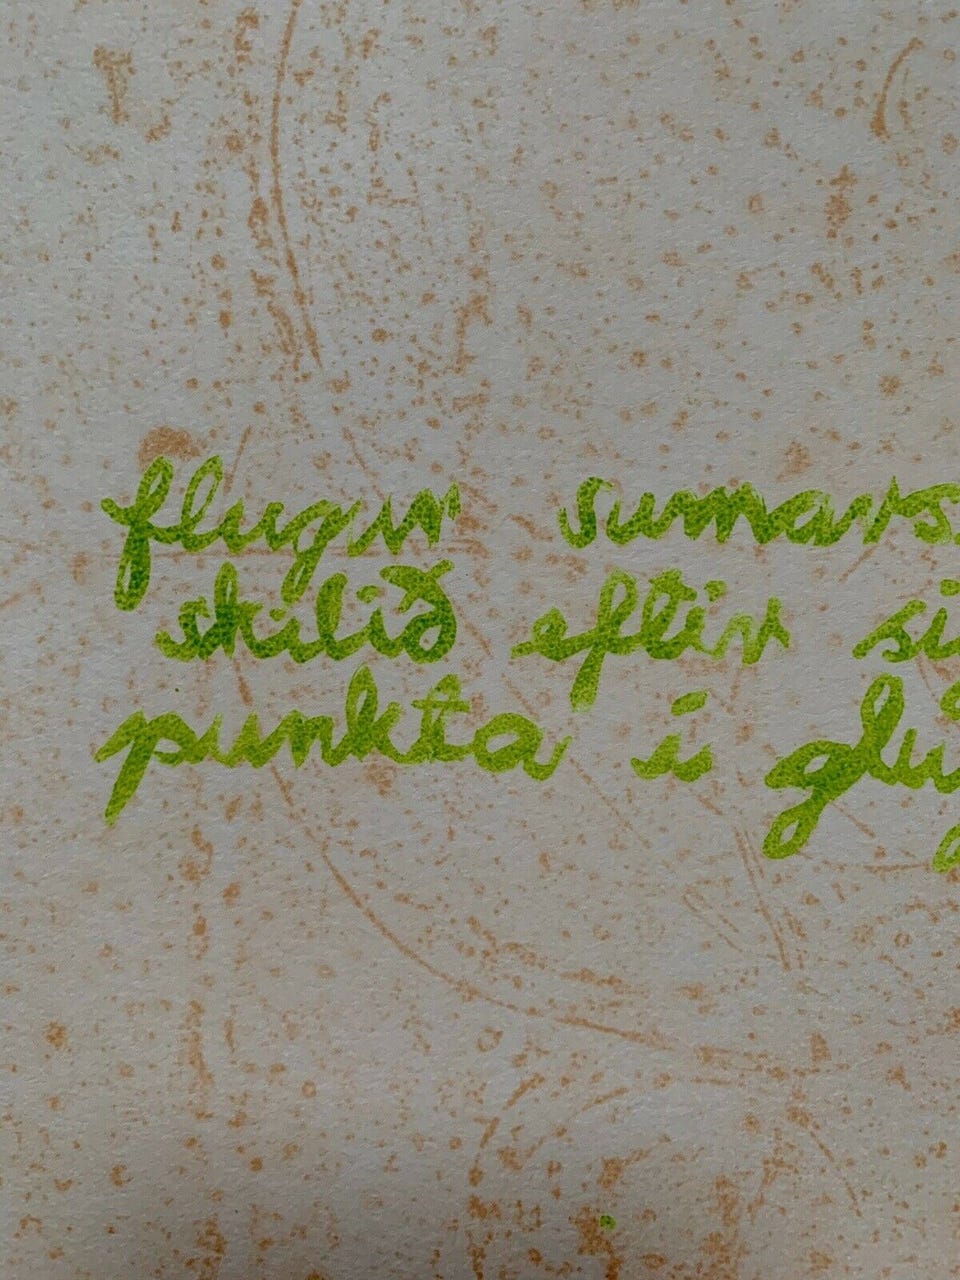 flugur sumars
skilið eftir si
punkta í glug